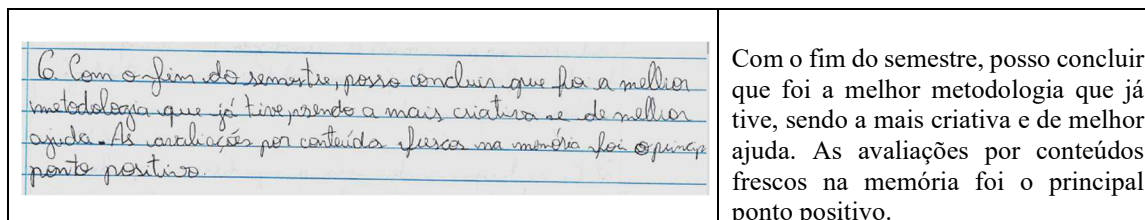 6. Com o fim do semestre, posso concluir que foi a melhor
metodologia que já tive, sendo a mais criativa e de melhor
ajuda. As avaliações por conteúdos frescos na memória foi o princip
ponto positivo.
Com o fim do semestre, posso concluir
que foi a melhor metodologia que já
tive, sendo a mais criativa e de melhor
ajuda. As avaliações por conteúdos
frescos na memória foi o principal
ponto positivo.